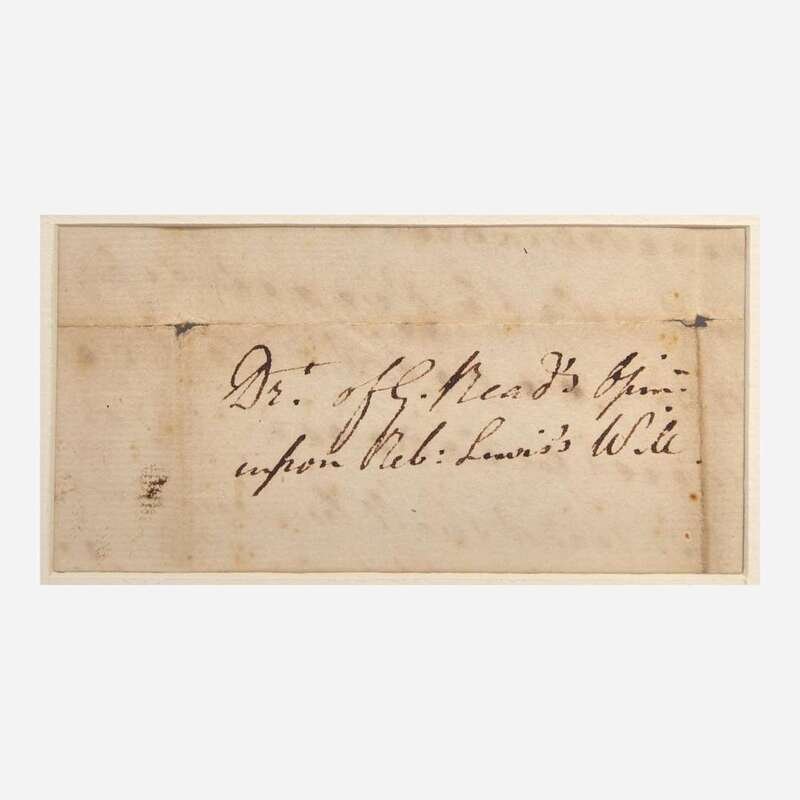 Dr. of G. Read's Opin:
upon Reb: Lewis's Will.